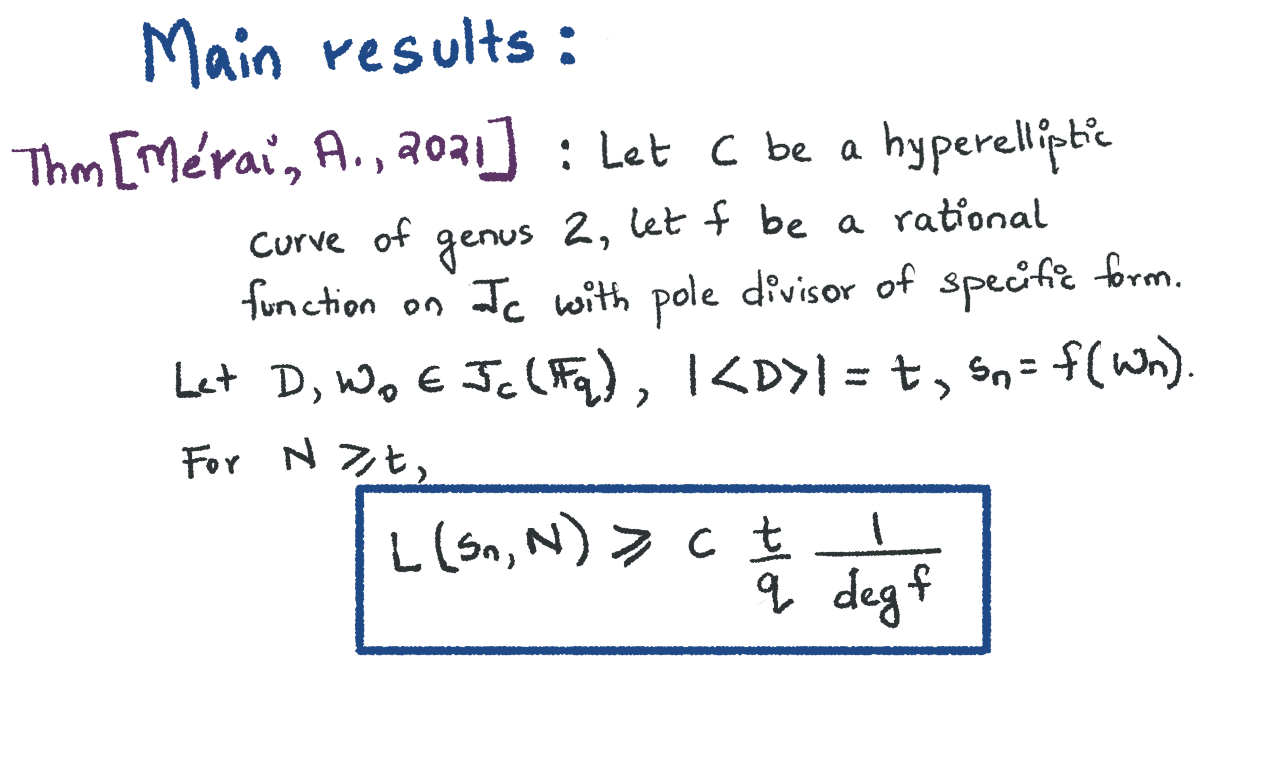 Main results:
Thm [Mérai, A., 2021] : Let C be a hyperelliptic
curve of genus 2, let f be a rational
function on J_C with pole divisor of specific form.
Let D, W_0 ∈ J_C(𝔽_q), |<D>| = t, s_n = f(W_n).
For N ⩾ t,
L(s_n, N) ⩾ c t/q 1/deg f